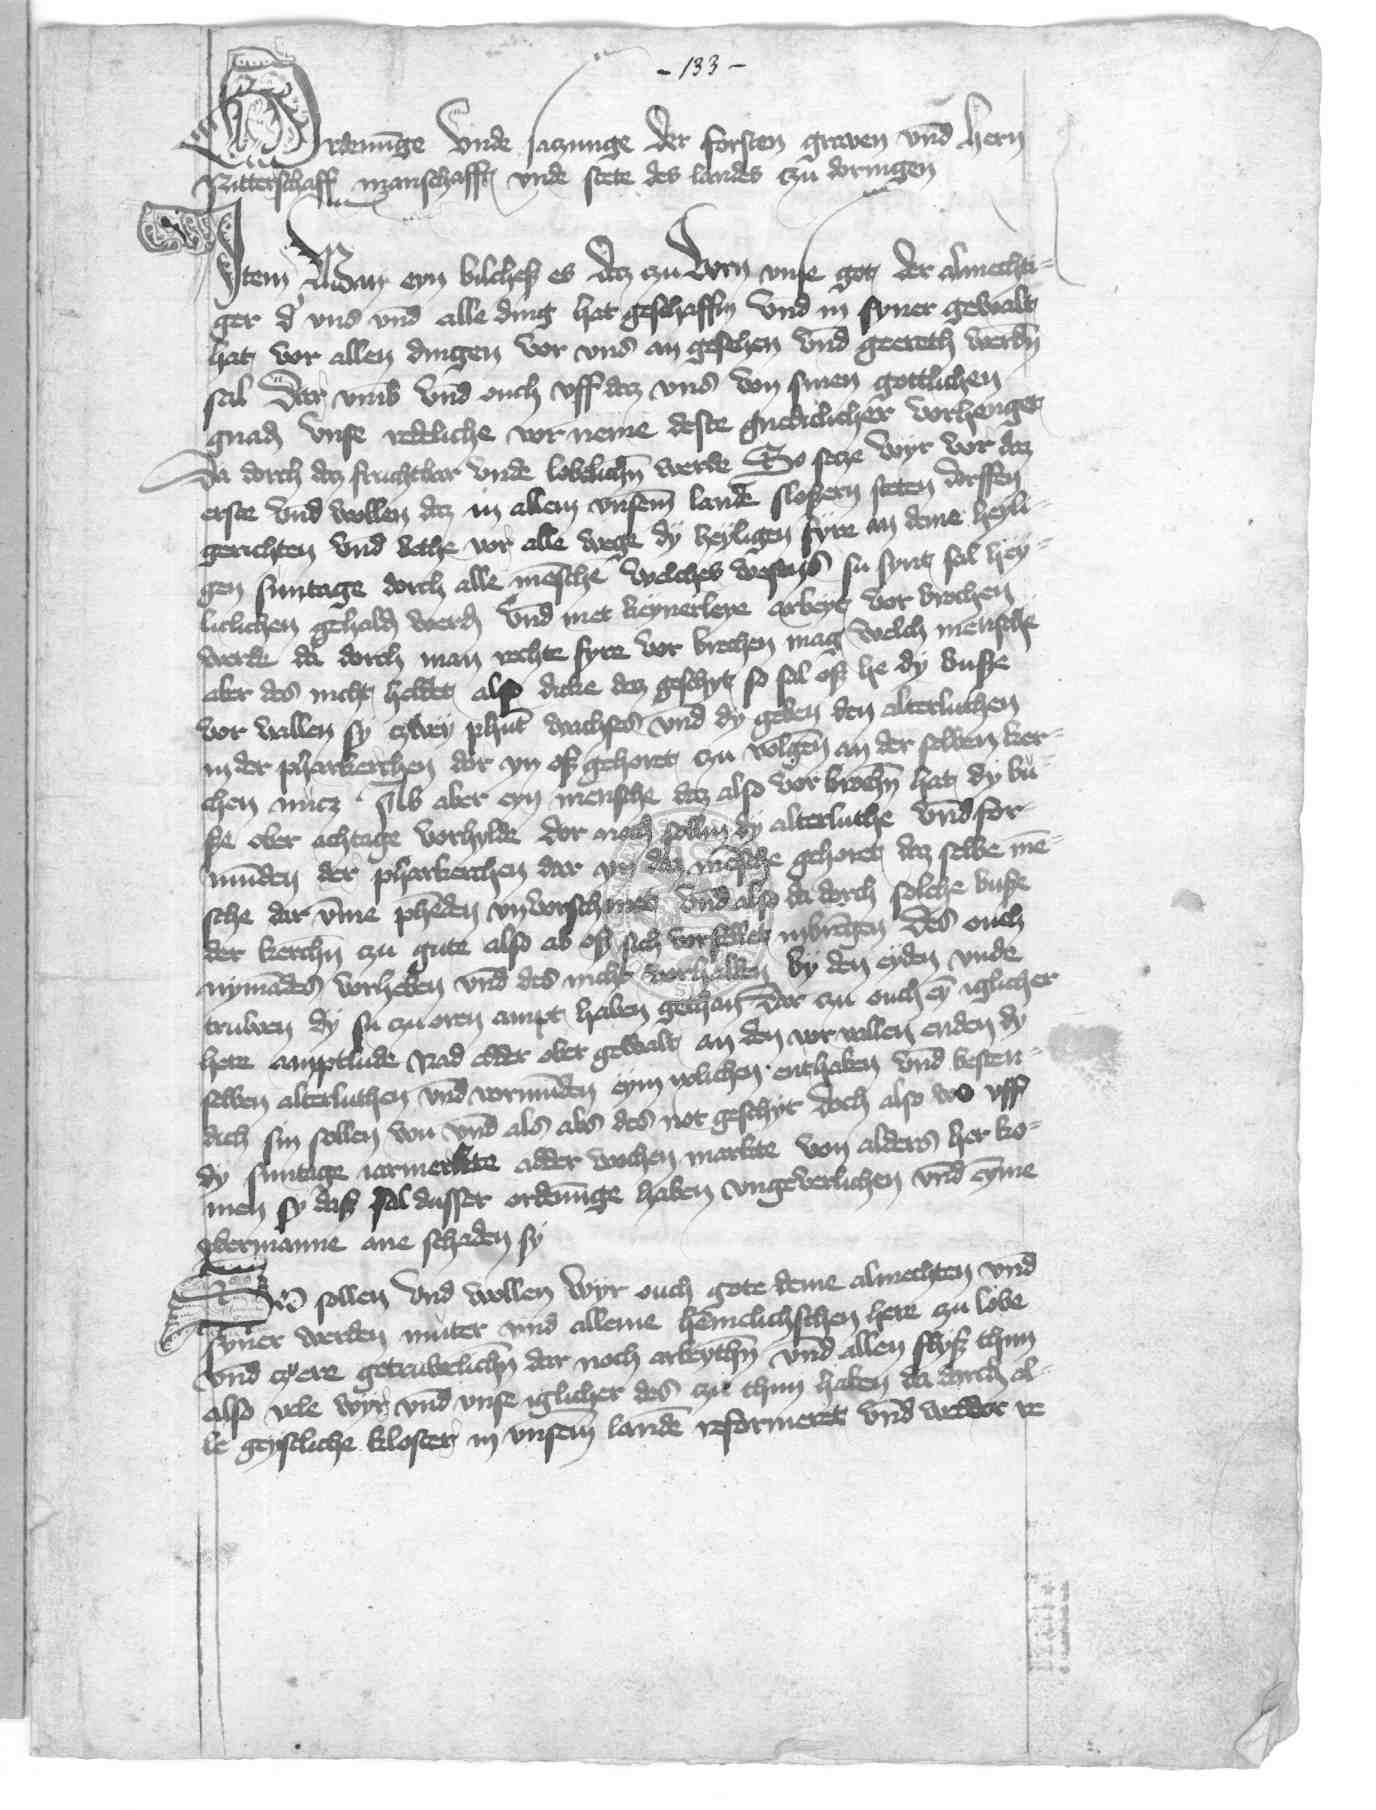 - 133 -
Ordenu̅ge Vnde satzunge der forsten graven vnd̅ hern
Ritterschafft manschafft vnde stete des landes czu doringen
Item Wan eyn bilches es daz czu vorn vnse got der almechti-
ger d' vns vnd̅ alle ding hat geschaffin vnd in syner gewalt
hat vor allen dingen vor vns an gesehen vnd̅ geereth werdn̅
sal Dar vmb̅ vnd̅ ouch vff daz vns von sinen gottlichen
gnad̅ vnse redeliche vor neme deste gnediclicher vorhenget
Da dorch daz fruchtbar vnde lobelichn̅ werde So setze wyr vor daz
erste vnd wollen daz in allem vnsem̅ lande sloßern steten dorffen
gerichten vnd̅ bethe vor alle wege dy heyligen fyre an deme heyli-
gen suntage dorch alle me̅sche welches wesens su synt sal hey-
liclichen gehald̅ werd̅ vnd̅ met keynerleye arbeyt vor brochen
werde da dorch man rechte fyre vor brechen mag welch mensche
aber des nicht heldet also dicke daz geschyt so sal es he dy busze
vor vallen sy czwey phu̅t wachses vnd̅ dy geben den alterluthen
in der pharkerchen dor yn es gehoret czu volgen̅ an der selben ker-
chen nucz Ab aber eyn mensche daz also vor brochn̅ hat dy bu-
ße ober achtage vorhylde dor noch sollin dy alterluthe vnd̅ for-
mu̅den der pharkerchen dar yn daz me̅sche gehoret daz selbe me̅-
sche dar v̅me phe̅den vnvorschinet vnd also da dorch solche buße
der kerchn̅ czu gute also ab es sich vorfellet inbre̅gen Des ouch
nyma̅des vorheben vnd̅ des nicht vorhalden by den eyden vnde
truwen dy su czu oren ampt haben gethan Dar czu ouch ey̅ iglicher
here amptlude Rad adder ober gewalt an den vor vallen enden dy
selben alterluthen vnd̅ vormu̅den eym iclichen enthaben vnd̅ besten-
dich sin sollen von vnd̅ als abs des not geschyt doch also wo vff
dy suntage iarmerkte adder wochen markte von alders her ko-
men sy daß sal dusser ordenu̅nge haben vngeverlichen vnd̅ eyme
obermanne ane schaden sy
So sollen vnd wollen wyr ouch gote deme almechten vnd̅
syner werden muter vnd alleme hemelichschen here czu lobe
vnd̅ czu ere getruwelichn̅ dar noch arbeythn̅ vnd̅ allen flyß thun
also vele wyr vnd̅ vnse iglicher des czu thun haben da dorch al-
le geystliche kloster in vnsem̅ lande reformeret vnd̅ weddor re